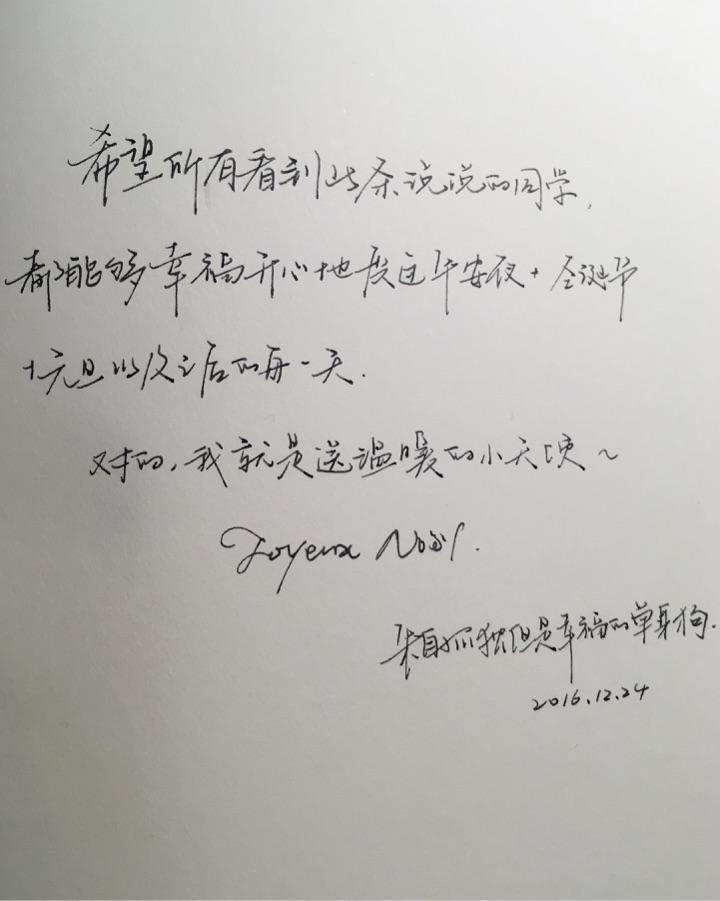 希望所有看到此条说说的同学,
都能够幸福开心地度过平安夜+圣诞节
+元旦以及之后的每一天.
对的,我就是送温暖的小天使~
Joyeux Noël.
来自孤独但是幸福的单身狗.
2016.12.24